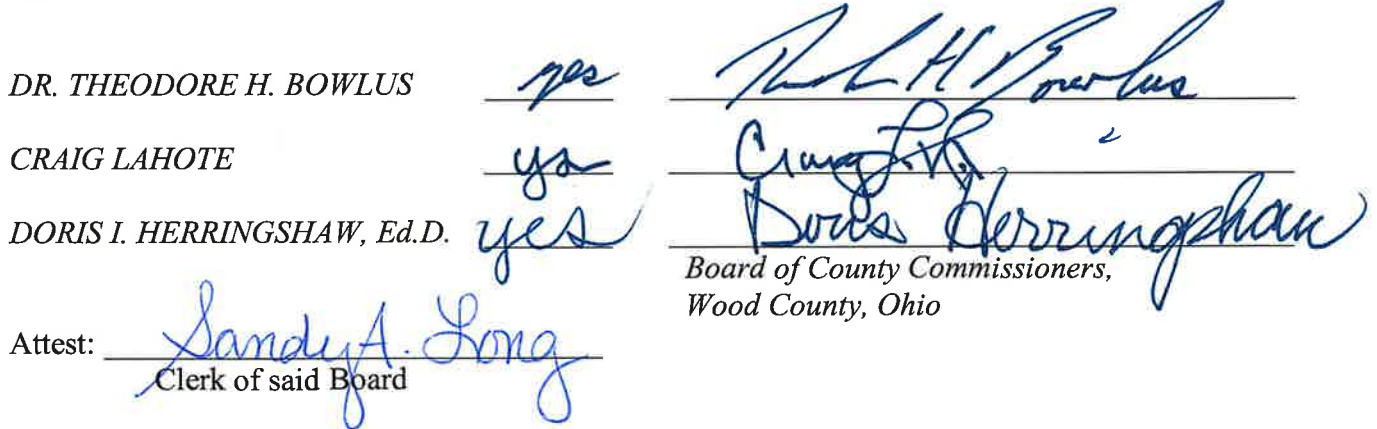 DR. THEODORE H. BOWLUS yes H Bowlus
CRAIG LAHOTE yes Craig
DORIS I. HERRINGSHAW, Ed.D. yes Doris Herringshaw
Board of County Commissioners,
Wood County, Ohio
Attest: Sandy A. Long
Clerk of said Board